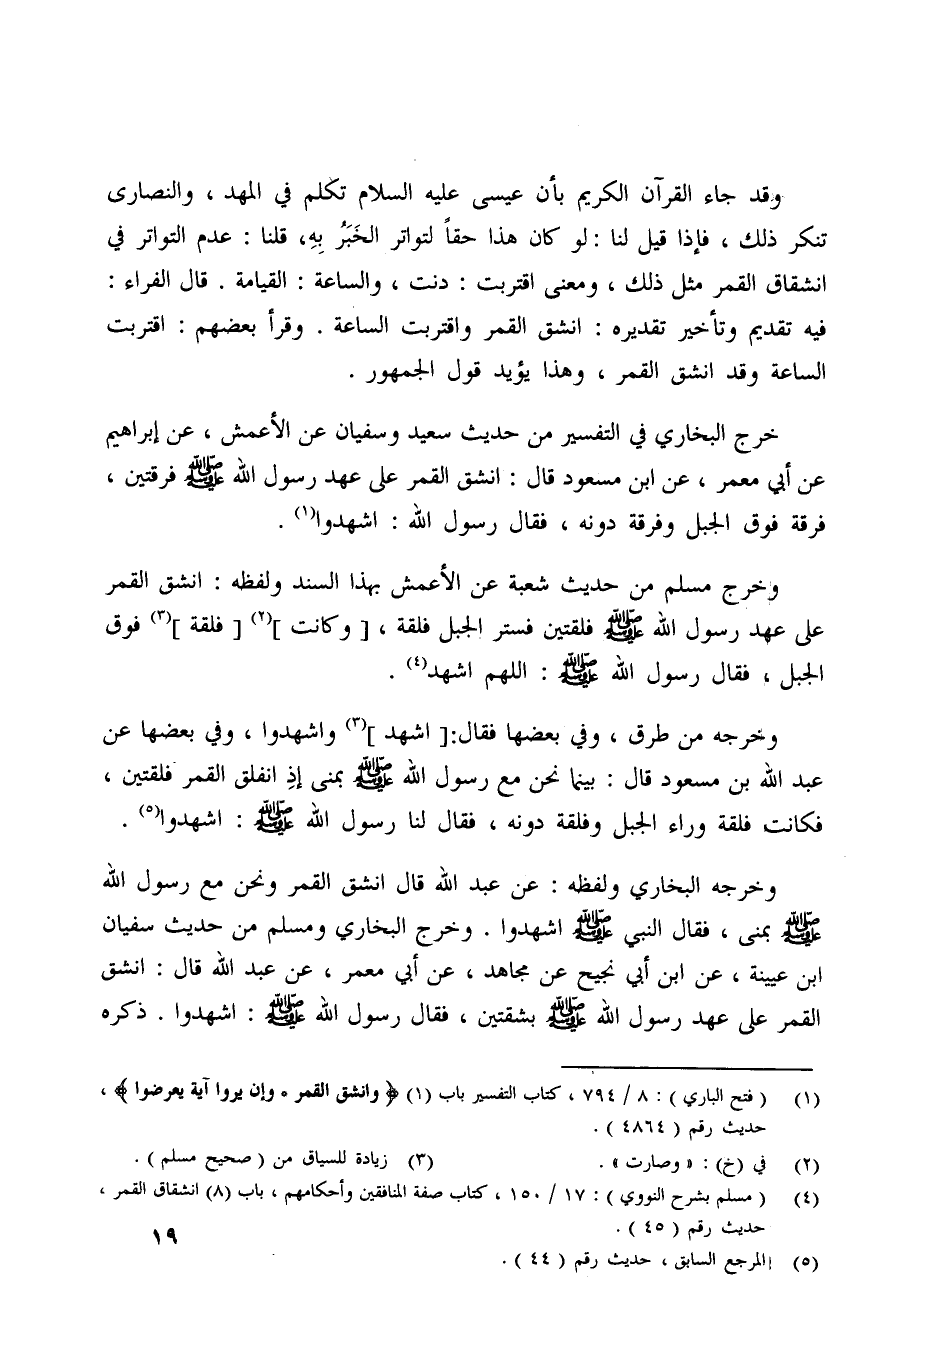 وقد جاء القرآن الكريم بأن عيسى عليه السلام تكلم في المهد ، والنصارى
تنكر ذلك ، فإذا قيل لنا : لو كان هذا حقاً لتواتر الخَبَرُ بِهِ، قلنا : عدم التواتر في
انشقاق القمر مثل ذلك ، ومعنى اقتربت : دنت ، والساعة : القيامة . قال الفراء :
فيه تقديم وتأخير تقديره : انشق القمر واقتربت الساعة . وقرأ بعضهم : اقتربت
الساعة وقد انشق القمر ، وهذا يؤيد قول الجمهور .
خرج البخاري في التفسير من حديث سعيد وسفيان عن الأعمش ، عن إبراهيم
عن أبي معمر ، عن ابن مسعود قال : انشق القمر على عهد رسول الله ﷺ فرقتين ،
فرقة فوق الجبل وفرقة دونه ، فقال رسول الله : اشهدوا(١) .
وخرج مسلم من حديث شعبة عن الأعمش بهذا السند ولفظه : انشق القمر
على عهد رسول الله ﷺ فلقتين فستر الجبل فلقة ، [ وكانت ](٢) [ فلقة ](٣) فوق
الجبل ، فقال رسول الله ﷺ : اللهم اشهد(٤) .
وخرجه من طرق ، وفي بعضها فقال:[ اشهد ](٣) واشهدوا ، وفي بعضها عن
عبد الله بن مسعود قال : بينما نحن مع رسول الله ﷺ بمنى إذِ انفلق القمر فلقتين ،
فكانت فلقة وراء الجبل وفلقة دونه ، فقال لنا رسول الله ﷺ : اشهدوا(٥) .
وخرجه البخاري ولفظه : عن عبد الله قال انشق القمر ونحن مع رسول الله
ﷺ بمنى ، فقال النبي ﷺ اشهدوا . وخرج البخاري ومسلم من حديث سفيان
ابن عيينة ، عن ابن أبي نجيح عن مجاهد ، عن أبي معمر ، عن عبد الله قال : انشق
القمر على عهد رسول الله ﷺ بشقتين ، فقال رسول الله ﷺ : اشهدوا . ذكره
(١) ( فتح الباري ) : ٨ / ٧٩٤ ، كتاب التفسير باب (١) ﴿ وانشق القمر ٠ وإن يروا آية يعرضوا ﴾ ،
حديث رقم ( ٤٨٦٤ ) .
(٢) في (خ) : « وصارت » . (٣) زيادة للسياق من ( صحيح مسلم ) .
(٤) ( مسلم بشرح النووي ) : ١٧ / ١٥٠ ، كتاب صفة المنافقين وأحكامهم ، باب (٨) انشقاق القمر ،
حديث رقم ( ٤٥ ) .
(٥) المرجع السابق ، حديث رقم ( ٤٤ ) .
١٩